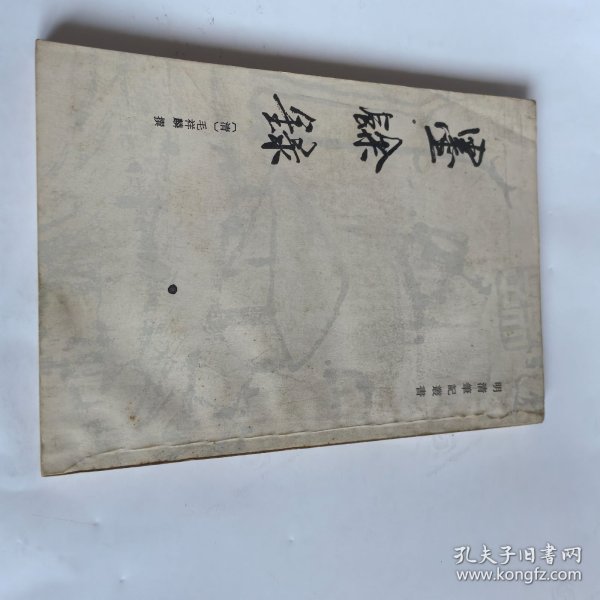 明清筆記叢書
墨餘錄
〔清〕毛祥麟 撰
孔夫子旧书网
www.kongfz.com